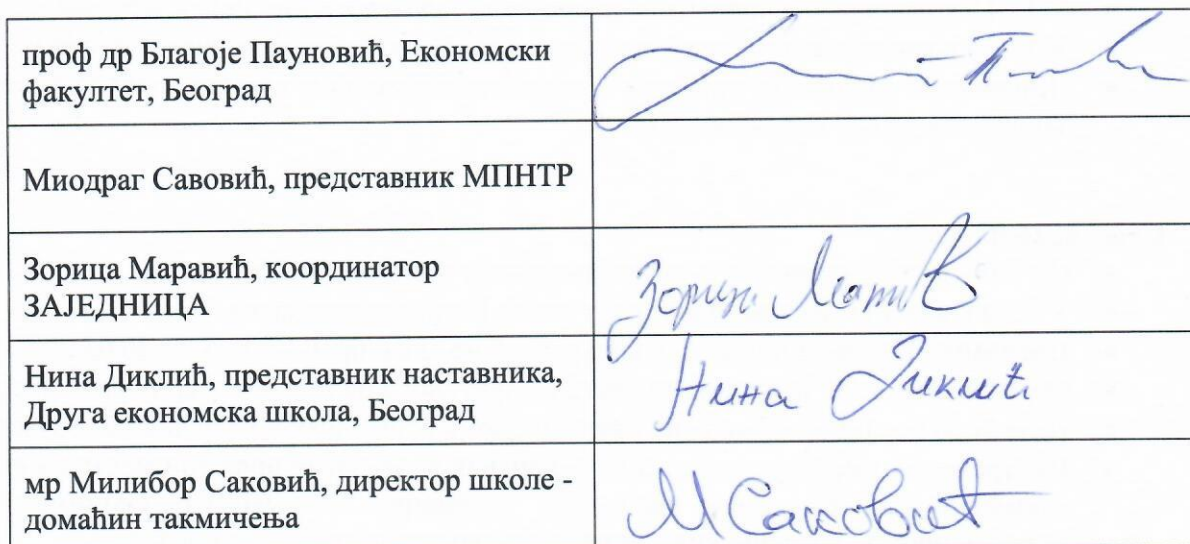 проф др Благоје Пауновић, Економски
факултет, Београд
Миодраг Савовић, представник МПНТР
Зорица Маравић, координатор
ЗАЈЕДНИЦА
Зорица
Нина Диклић, представник наставника,
Друга економска школа, Београд
Нина Диклић
мр Милибор Саковић, директор школе -
домаћин такмичења
М Саковић